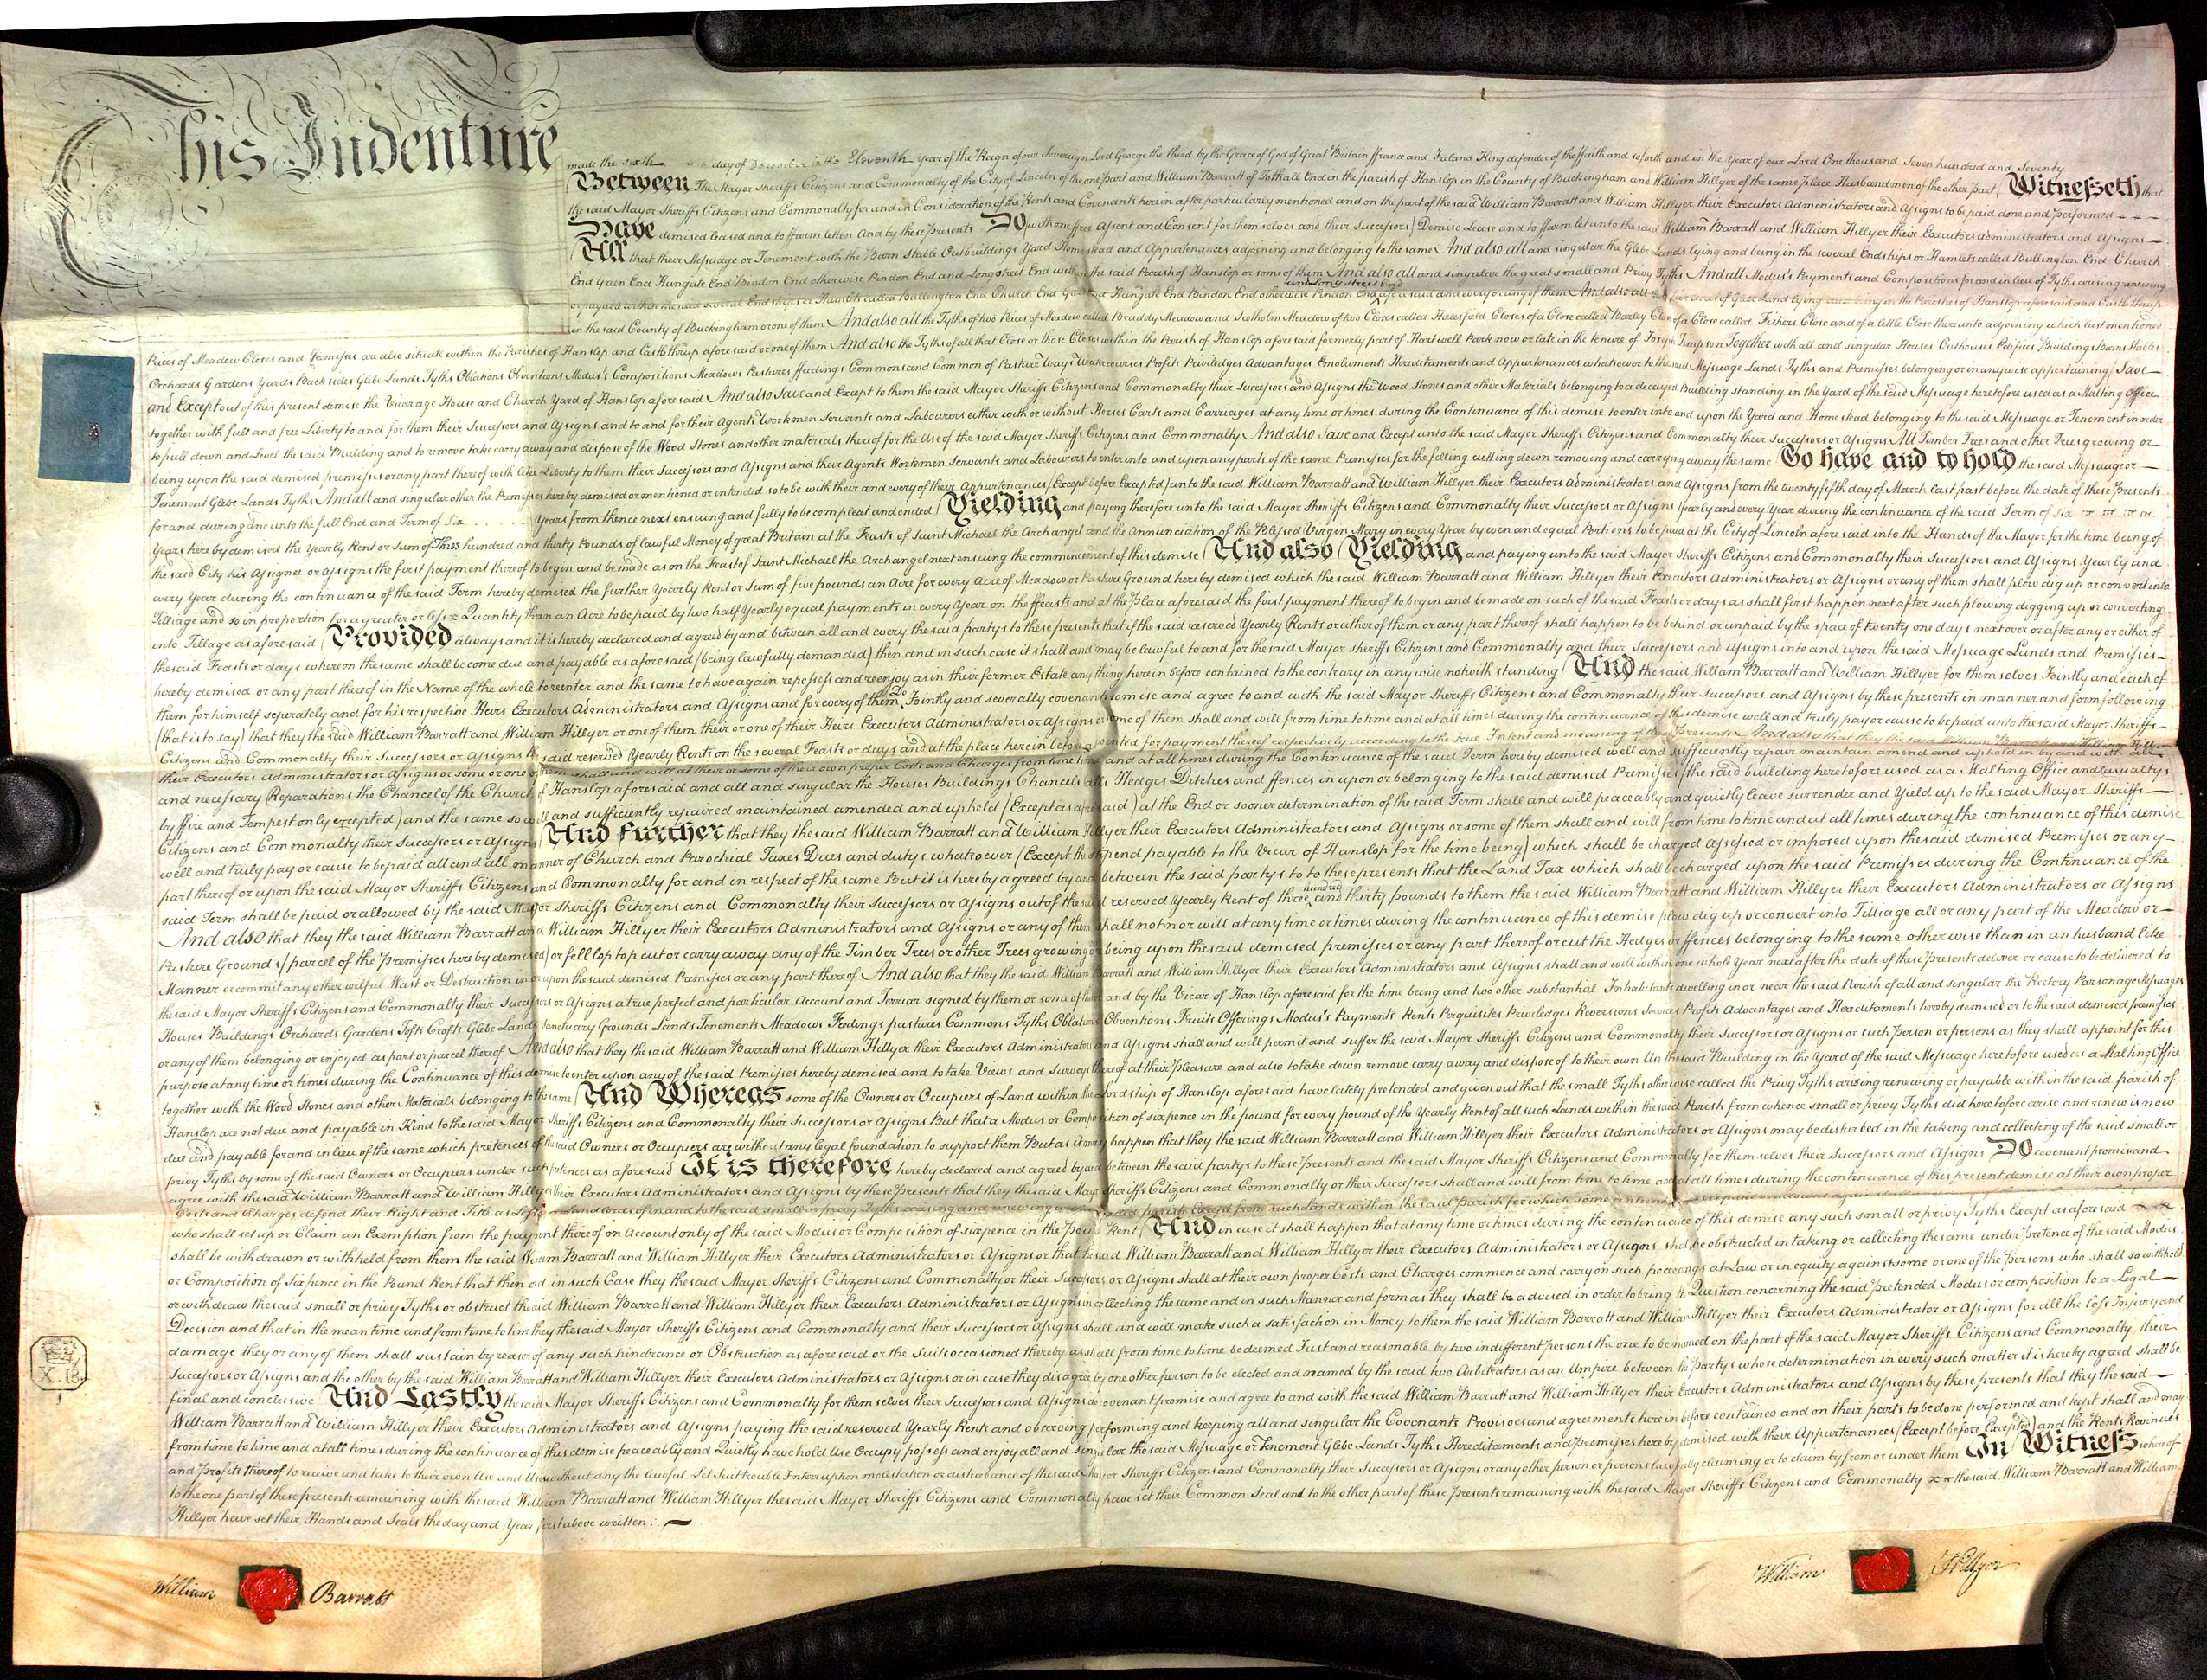 This Indenture
made the sixth day of December in the Eleventh Year of the Reign of our Sovereign Lord George the third by the Grace of God of Great Britain ffrance and Ireland King defender of the ffaith and soforth and in the Year of our Lord One thousand Seven hundred and Seventy
Between The Mayor Sheriffs Citizens and Commonalty of the City of Lincoln of the one part and William Barratt of Tothall End in the parish of Hanslop in the County of Buckingham and William Hillyer of the same place Husbandmen of the other part Witnesseth that
the said Mayor Sheriffs Citizens and Commonalty for and in Consideration of the Rents and Covenants herein after particularly mentioned and on the part of the said William Barratt and William Hillyer their Executors Administrators and Assigns to be paid done and performed
Have demised leased and to ffarm letten And by these Presents Do (with one ffree Assent and Consent for themselves and their Successors) Demise Lease and to ffarm let unto the said William Barratt and William Hillyer their Executors administrators and Assigns
All that their Messuage or Tenement with the Barn Stable Outbuildings Yard Homestead and Appurtenances adjoining and belonging to the same And also all and singular the Glebe Lands lying and being in the several Endships or Hamlets called Bullington End Church
End Green End Hungate End Bindon End otherwise Pindon End and Longstreet End within the said Parish of Hanslop or some of them And also all and singular the great small and Privy Tyths And all Modus's Payments and Compositions for and in lieu of Tyths arising renewing
and Long street End
or payable within the said several Endships or Hamlets called Bullington End Church End Green End Hungate End Bindon End otherwise Pindon End aforesaid and every or any of them And also all five acres of Glebe Land lying and being in the Parishes of Hanslop aforesaid and Castlethrup
in the said County of Buckingham or one of them And also all the Tyths of two Pieces of Meadow called Braddy Meadow and Scotholm Meadow of two Closes called Halesfield Closes of a Close called Barley Close of a Close called Fishers Close and of a little Close thereunto adjoining which last mentioned
Pieces of Meadow Closes and Premisses are also situate within the Parishes of Hanslop and Castlethrup aforesaid or one of them And also the Tyths of all that Close or those Closes within the Parish of Hanslop aforesaid formerly part of Hartwell Park now or late in the tenure of Joseph Timpson Together with all and singular Houses Outhouses Edifices Buildings Barns Stables
Orchards Gardens Yards Back sides Glebe Lands Tyths Oblations Obventions Modus's Compositions Meadows Pastures ffeedings Commons and Common of Pasture Ways Watercourses Profits Priviledges Advantages Emoluments Hereditaments and Appurtenances whatsoever to the said Messuage Lands Tyths and Premisses belonging or in any wise appertaining (Save
and Except out of this present demise the Vicarage House and Church Yard of Hanslop aforesaid And also Save and Except to them the said Mayor Sheriffs Citizens and Commonalty their Successors and Assigns the Wood Stones and other Materials belonging to a decayed Building standing in the Yard of the said Messuage heretofore used as a Malting Office
together with full and free Liberty to and for them their Successors and Assigns and to and for their Agents Workmen Servants and Labourers either with or without Horses Carts and Carriages at any time or times during the Continuance of this demise to enter into and upon the Yard and Homestead belonging to the said Messuage or Tenement in order
to pull down and Level the said Building and to remove take carry away and dispose of the Wood Stones and other materials thereof for the Use of the said Mayor Sheriffs Citizens and Commonalty And also Save and Except unto the said Mayor Sheriffs Citizens and Commonalty their Successors or Assigns All Timber Trees and other Trees growing or
being upon the said demised premisses or any part thereof with like Liberty to them their Successors and Assigns and their Agents Workmen Servants and Labourers to enter into and upon any part of the same Premisses for the felling cutting down removing and carrying away the same To have and to hold the said Messuage or
Tenement Glebe Lands Tyths And all and singular other the Premisses hereby demised or mentioned or intended so to be with their and every of their Appurtenances (Except before Excepted) unto the said William Barratt and William Hillyer their Executors Administrators and Assigns from the twenty fifth day of March last past before the date of these Presents
for and during and unto the full End and Term of Six Years from thence next ensuing and fully to be compleat and ended Yielding and paying therefore unto the said Mayor Sheriffs Citizens and Commonalty their Successors or Assigns Yearly and every Year during the continuance of the said Term of Six
Years hereby demised the Yearly Rent or Sum of Three hundred and thirty Pounds of lawful Money of great Britain at the Feasts of Saint Michael the Archangel and the Annunciation of the Blessed Virgin Mary in every Year by even and equal Portions to be paid at the City of Lincoln aforesaid into the Hands of the Mayor for the time being of
the said City his Assignee or Assigns the first payment thereof to begin and be made as on the Feast of Saint Michael the Archangel next ensuing the commencement of this demise And also Yielding and paying unto the said Mayor Sheriffs Citizens and Commonalty their Successors and Assigns Yearly and
every Year during the continuance of the said Term hereby demised the further Yearly Rent or Sum of five pounds an Acre for every Acre of Meadow or Pasture Ground hereby demised which the said William Barratt and William Hillyer their Executors Administrators or Assigns or any of them shall plow dig up or convert into
Tilliage and so in proportion for a greater or lesser Quantity than an Acre to be paid by two half Yearly equal payments in every Year on the ffeasts and at the Place aforesaid the first payment thereof to begin and be made on such of the said Feasts or days as shall first happen next after such plowing digging up or converting
into Tillage as aforesaid Provided always and it is hereby declared and agreed by and between all and every the said partys to these presents that if the said reserved Yearly Rents or either of them or any part thereof shall happen to be behind or unpaid by the space of twenty one days next over or after any or either of
the said Feasts or days whereon the same shall become due and payable as aforesaid (being lawfully demanded) then and in such case it shall and may be lawful to and for the said Mayor Sheriffs Citizens and Commonalty and their Successors and Assigns into and upon the said Messuage Lands and Premisses
hereby demised or any part thereof in the Name of the whole to reenter and the same to have again reposess and reenjoy as in their former Estate any thing herein before contained to the contrary in any wise notwithstanding And the said William Barratt and William Hillyer for themselves Jointly and each of
them for himself seperately and for his respective Heirs Executors Administrators and Assigns and for every of them Do Jointly and severally covenant promise and agree to and with the said Mayor Sheriffs Citizens and Commonalty their Successors and Assigns by these presents in manner and form following
(that is to say) that they the said William Barratt and William Hillyer or one of them their or one of their Heirs Executors Administrators or Assigns or some of them shall and will from time to time and at all times during the continuance of this demise well and truly pay or cause to be paid unto the said Mayor Sheriffs
Citizens and Commonalty their Successors or Assigns the said reserved Yearly Rents on the several Feasts or days and at the place herein before appointed for payment thereof respectively according to the true Intent and meaning of these Presents And also that they the said William Barratt and William Hillyer
their Executors Administrators or Assigns or some or one of them shall and will at their or some of their own proper Costs and Charges from time to time and at all times during the Continuance of the said Term hereby demised well and sufficiently repair maintain amend and uphold in by and with all
and necessary Reparations the Chancel of the Church of Hanslop aforesaid and all and singular the Houses Buildings Chancels Walls Hedges Ditches and ffences in upon or belonging to the said demised Premisses (the said building heretofore used as a Malting Office and casualtys
by ffire and Tempest only excepted) and the same so well and sufficiently repaired maintained amended and upheld (Except as aforesaid) at the End or sooner determination of the said Term shall and will peaceably and quietly leave surrender and Yield up to the said Mayor Sheriffs
Citizens and Commonalty their Successors or Assigns And further that they the said William Barratt and William Hillyer their Executors Administrators and Assigns or some of them shall and will from time to time and at all times during the continuance of this demise
well and truly pay or cause to be paid all and all manner of Church and Parochial Taxes Dues and dutys whatsoever (Except the stipend payable to the Vicar of Hanslop for the time being) which shall be charged assessed or imposed upon the said demised Premisses or any
part thereof or upon the said Mayor Sheriffs Citizens and Commonalty for and in respect of the same But it is hereby agreed by and between the said partys to to these presents that the Land Tax which shall be charged upon the said Premisses during the Continuance of the
hundred
said Term shall be paid or allowed by the said Mayor Sheriffs Citizens and Commonalty their Successors or Assigns out of the said reserved Yearly Rent of three and thirty pounds to them the said William Barratt and William Hillyer their Executors Administrators or Assigns
And also that they the said William Barratt and William Hillyer their Executors Administrators and Assigns or any of them shall not nor will at any time or times during the continuance of this demise plow dig up or convert into Tilliage all or any part of the Meadow or
Pasture Grounds (parcel of the Premisses hereby demised) or fell lop top cut or carry away any of the Timber Trees or other Trees growing or being upon the said demised premisses or any part thereof or cut the Hedges or ffences belonging to the same otherwise than in an husband like
Manner or commit any other wilful Wast or Destruction in or upon the said demised Premisses or any part thereof And also that they the said William Barratt and William Hillyer their Executors Administrators and Assigns shall and will within one whole Year next after the date of these Presents deliver or cause to be delivered to
the said Mayor Sheriffs Citizens and Commonalty their Successors or Assigns a true perfect and particular Account and Terriar signed by them or some of them and by the Vicar of Hanslop aforesaid for the time being and two other substantial Inhabitants dwelling in or near the said Parish of all and singular the Rectory Parsonage Messuages
Houses Buildings Orchards Gardens Tofts Crofts Glebe Lands Sanctuary Grounds Lands Tenements Meadows Feedings pastures Commons Tyths Oblations Obventions Fruits Offerings Modus's Payments Rents Perquisites Priviledges Reversions Services Profits Advantages and Hereditaments hereby demised or to the said demised premisses
or any of them belonging or enjoyed as part or parcel thereof And also that they the said William Barratt and William Hillyer their Executors Administrators and Assigns shall and will permit and suffer the said Mayor Sheriffs Citizens and Commonalty their Successors or Assigns or such Person or persons as they shall appoint for this
purpose at any time or times during the Continuance of this demise to enter upon any of the said Premisses hereby demised and to take Views and Surveys thereof at their Pleasure and also to take down remove carry away and dispose of to their own Use the said Building in the Yard of the said Messuage heretofore used as a Malting Office
together with the Wood Stones and other Materials belonging to the same And Whereas some of the Owners or Occupiers of Land within the Lordship of Hanslop aforesaid have lately pretended and given out that the small Tyths otherwise called the Privy Tyths arising renewing or payable within the said parish of
Hanslop are not due and payable in Kind to the said Mayor Sheriffs Citizens and Commonalty their Successors or Assigns But that a Modus or Composition of sixpence in the pound for every pound of the Yearly Rent of all such Lands within the said Parish from whence small or privy Tyths did heretofore arise and renew is now
due and payable for and in lieu of the same which pretences of the said Owners or Occupiers are without any legal foundation to support them But as it may happen that they the said William Barratt and William Hillyer their Executors Administrators or Assigns may be disturbed in the taking and collecting of the said small or
privy Tyths by some of the said Owners or Occupiers under such pretences as aforesaid It is therefore hereby declared and agreed by and between the said partys to these Presents and the said Mayor Sheriffs Citizens and Commonalty for themselves their Successors and Assigns Do covenant promise and
agree with the said William Barratt and William Hillyer their Executors Administrators and Assigns by these Presents that they the said Mayor Sheriffs Citizens and Commonalty or their Successors shall and will from time to time and at all times during the continuance of this present demise at their own proper
Costs and Charges defend their Right and Title as Lessors Landlords of in and to the said small or privy Tyths arising and renewing parish Except from such Lands within the said Parish for which some
who shall set up or Claim an Exemption from the payment thereof on Account only of the said Modus or Composition of sixpence in the Pound Rent And in case it shall happen that at any time or times during the continuance of this demise any such small or privy Tyths Except as aforesaid
shall be withdrawn or withheld from them the said William Barratt and William Hillyer their Executors Administrators or Assigns or that the said William Barratt and William Hillyer their Executors Administrators or Assigns shall be obstructed in taking or collecting the same under Pretence of the said Modus
or Composition of Sixpence in the Pound Rent that then and in such Case they the said Mayor Sheriffs Citizens and Commonalty or their Successors or Assigns shall at their own proper Costs and Charges commence and carry on such proceedings at Law or in equity against some or one of the Persons who shall so withhold
or withdraw the said small or privy Tyths or obstruct the said William Barratt and William Hillyer their Executors Administrators or Assigns in collecting the same and in such Manner and form as they shall be advised in order to bring the Question concerning the said Pretended Modus or composition to a Legal
Decision and that in the mean time and from time to time they the said Mayor Sheriffs Citizens and Commonalty and their Successors or Assigns shall and will make such a satisfaction in Money to them the said William Barratt and William Hillyer their Executors Administrator or Assigns for all the loss Injury and
damage they or any of them shall sustain by reason of any such hindrance or Obstruction as aforesaid or the Suits occasioned thereby as shall from time to time be deemed Just and reasonable by two indifferent Persons the one to be named on the part of the said Mayor Sheriffs Citizens and Commonalty their
Successors or Assigns and the other by the said William Barratt and William Hillyer their Executors Administrators or Assigns or in case they disagree by one other person to be elected and named by the said two Arbitrators as an Umpire between the partys whose determination in every such matter it is hereby agreed shall be
final and conclusive And Lastly the said Mayor Sheriffs Citizens and Commonalty for themselves their Successors and Assigns do covenant promise and agree to and with the said William Barratt and William Hillyer their Executors Administrators and Assigns by these presents that they the said
William Barratt and William Hillyer their Executors Administrators and Assigns paying the said reserved Yearly Rents and observing performing and keeping all and singular the Covenants Provisoes and agreements herein before contained and on their parts to be done performed and kept shall and may
from time to time and at all times during the continuance of this demise peaceably and Quietly have hold Use Occupy possess and enjoy all and singular the said Messuage or Tenement Glebe Lands Tyths Hereditaments and Premisses hereby demised with their Appurtenances (Except before Excepted) and the Rents Revinues
and Profits thereof to receive and take to their own Use and Uses without any the lawful Let Suit trouble Interruption molestation or disturbance of the said Mayor Sheriffs Citizens and Commonalty their Successors or Assigns or any other person or persons lawfully claiming or to claim by from or under them In Witness whereof
to the one part of these presents remaining with the said William Barratt and William Hillyer the said Mayor Sheriffs Citizens and Commonalty have set their Common Seal and to the other part of these Presents remaining with the said Mayor Sheriffs Citizens and Commonalty the said William Barratt and William
Hillyer have set their Hands and Seals the day and Year first above written
X. 18
William Barratt
William Hillyer